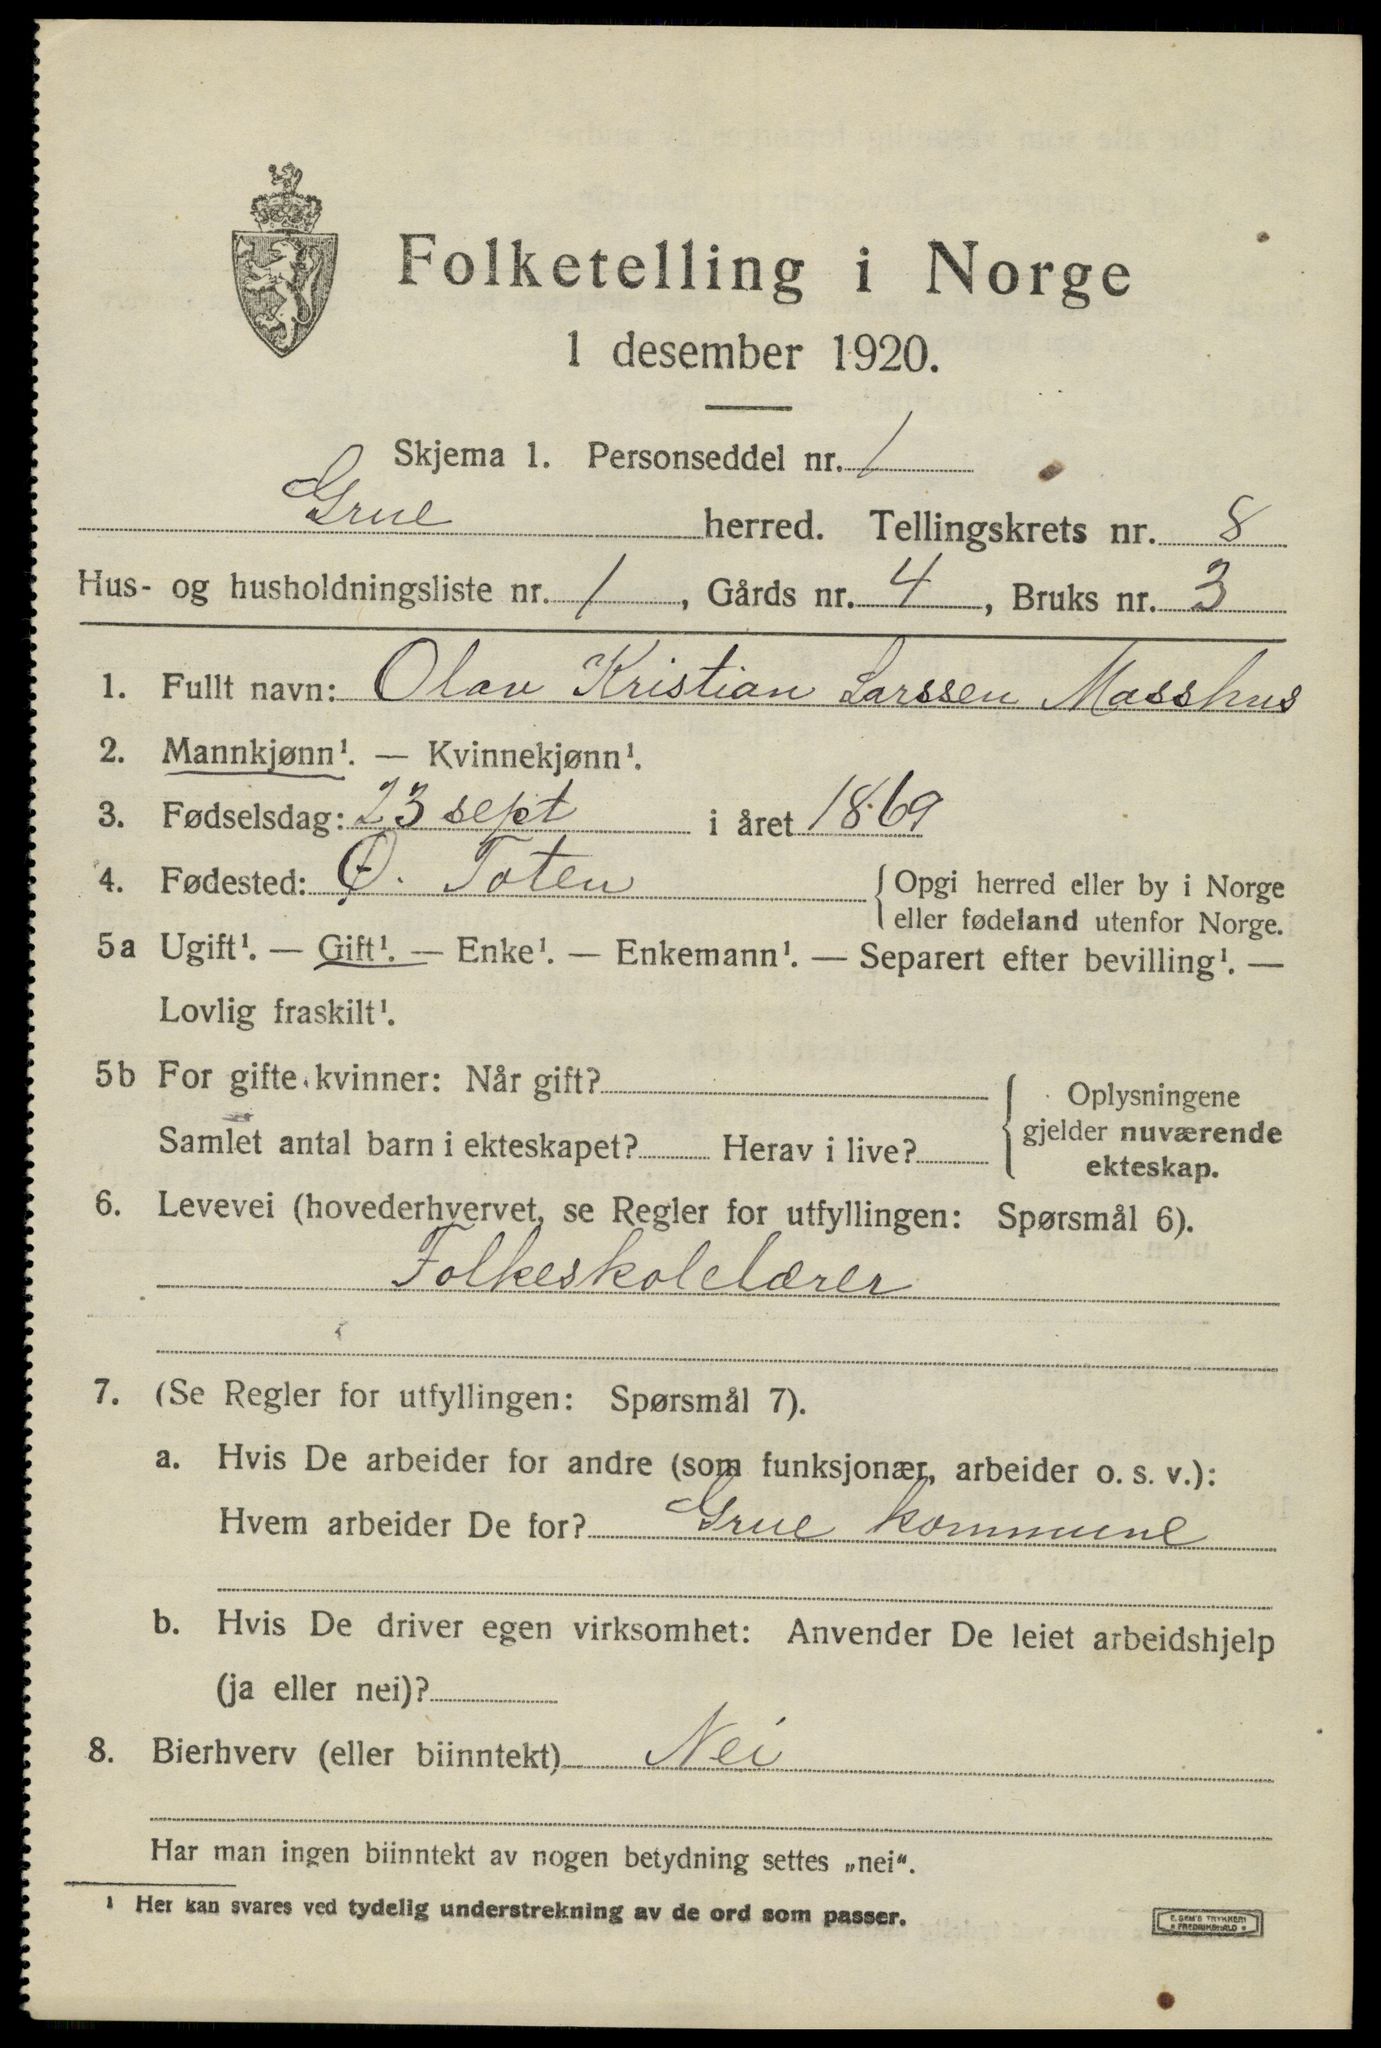 Folketelling i Norge
1 desember 1920.
Skjema 1. Personseddel nr. 1
Grue herred. Tellingskrets nr. 8
Hus- og husholdningsliste nr. 1, Gårds nr. 4, Bruks nr. 3
1. Fullt navn: Olav Kristian Larssen Masshus
2. Mannkjønn¹. — Kvinnekjønn¹.
3. Fødselsdag: 23 sept i året 1869
4. Fødested: Ø. Toten {Opgi herred eller by i Norge
eller fødeland utenfor Norge.
5a Ugift¹. — Gift¹. — Enke¹. — Enkemann¹. — Separert efter bevilling¹. —
Lovlig fraskilt¹.
5b For gifte kvinner: Når gift?
Samlet antal barn i ekteskapet? Herav i live?
Oplysningene
gjelder nuværende
ekteskap.
6. Levevei (hovederhvervet, se Regler for utfyllingen: Spørsmål 6).
Folkeskolelærer
7. (Se Regler for utfyllingen: Spørsmål 7).
a. Hvis De arbeider for andre (som funksjonær, arbeider o. s. v.):
Hvem arbeider De for? Grue kommune
b. Hvis De driver egen virksomhet: Anvender De leiet arbeidshjelp
(ja eller nei)?
8. Bierhverv (eller biinntekt) Nei
Har man ingen biinntekt av nogen betydning settes „nei".
¹ Her kan svares ved tydelig understrekning av de ord som passer.
E. SEM'S TRYKKERI
FREDRIKSHALD